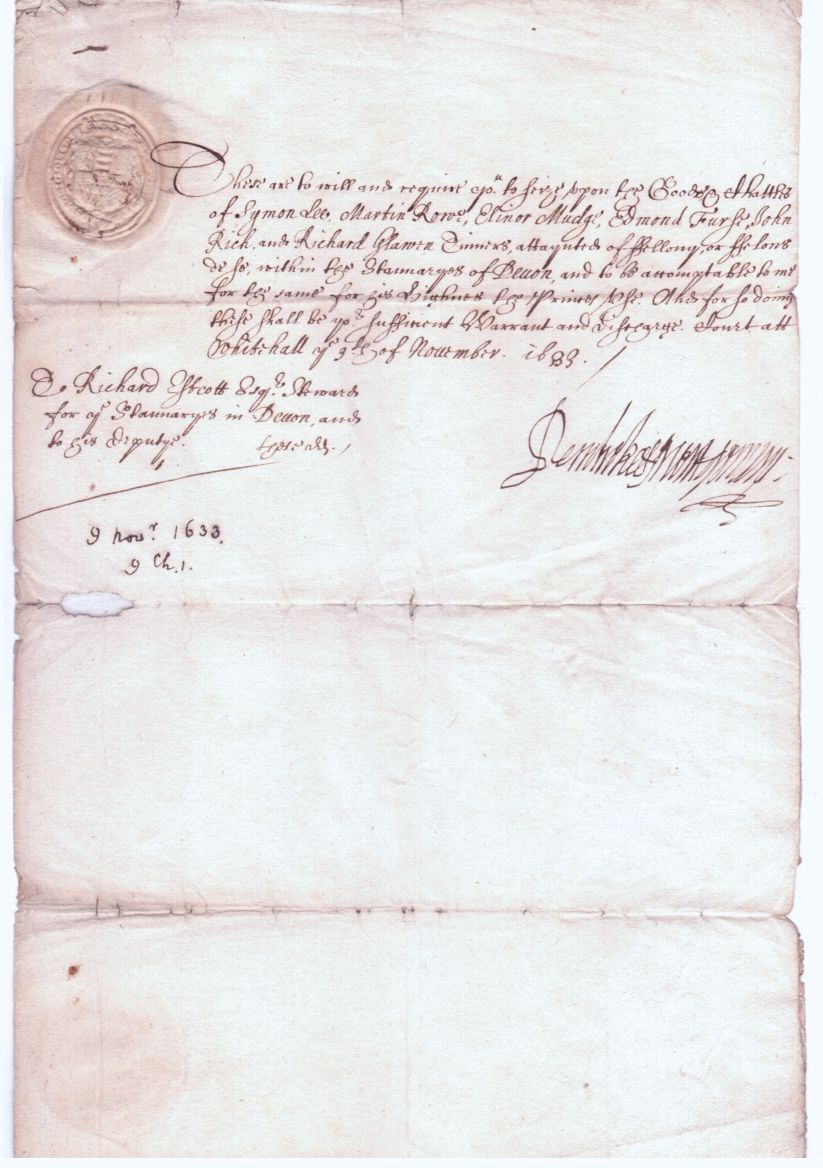 These are to will and require yo.u to seize upon the Goods & Chattles
of Symon Lee, Martin Rowe, Elinor Mudge, Edmond Furse, John
Rich, and Richard Glawen Tinners, attaynted of ffellony, or ffelons
de se, within the Stannaryes of Devon, and to be accomptable to me
for the same for his Highnes the Princes use. And for so doing
these shall be yo.r sufficient Warrant and discharge. Court att
Whitehall ye 9.th of November. 1633.
To Richard Escott Esq.r Steward
for ye Stannaryes in Devon, and
to his deputye. these dd.
Pembroke & Montgomery
9 nov.r 1633.
9 Ch. 1.